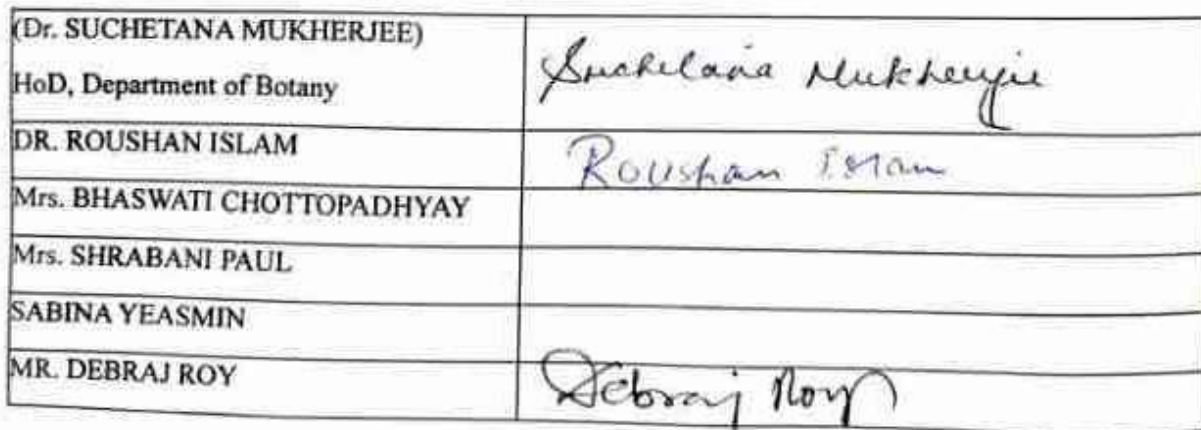 (Dr. SUCHETANA MUKHERJEE)
HoD, Department of Botany
Suchetana Mukherjee
DR. ROUSHAN ISLAM
Roushan Islam
Mrs. BHASWATI CHOTTOPADHYAY
Mrs. SHRABANI PAUL
SABINA YEASMIN
MR. DEBRAJ ROY
Debraj Roy